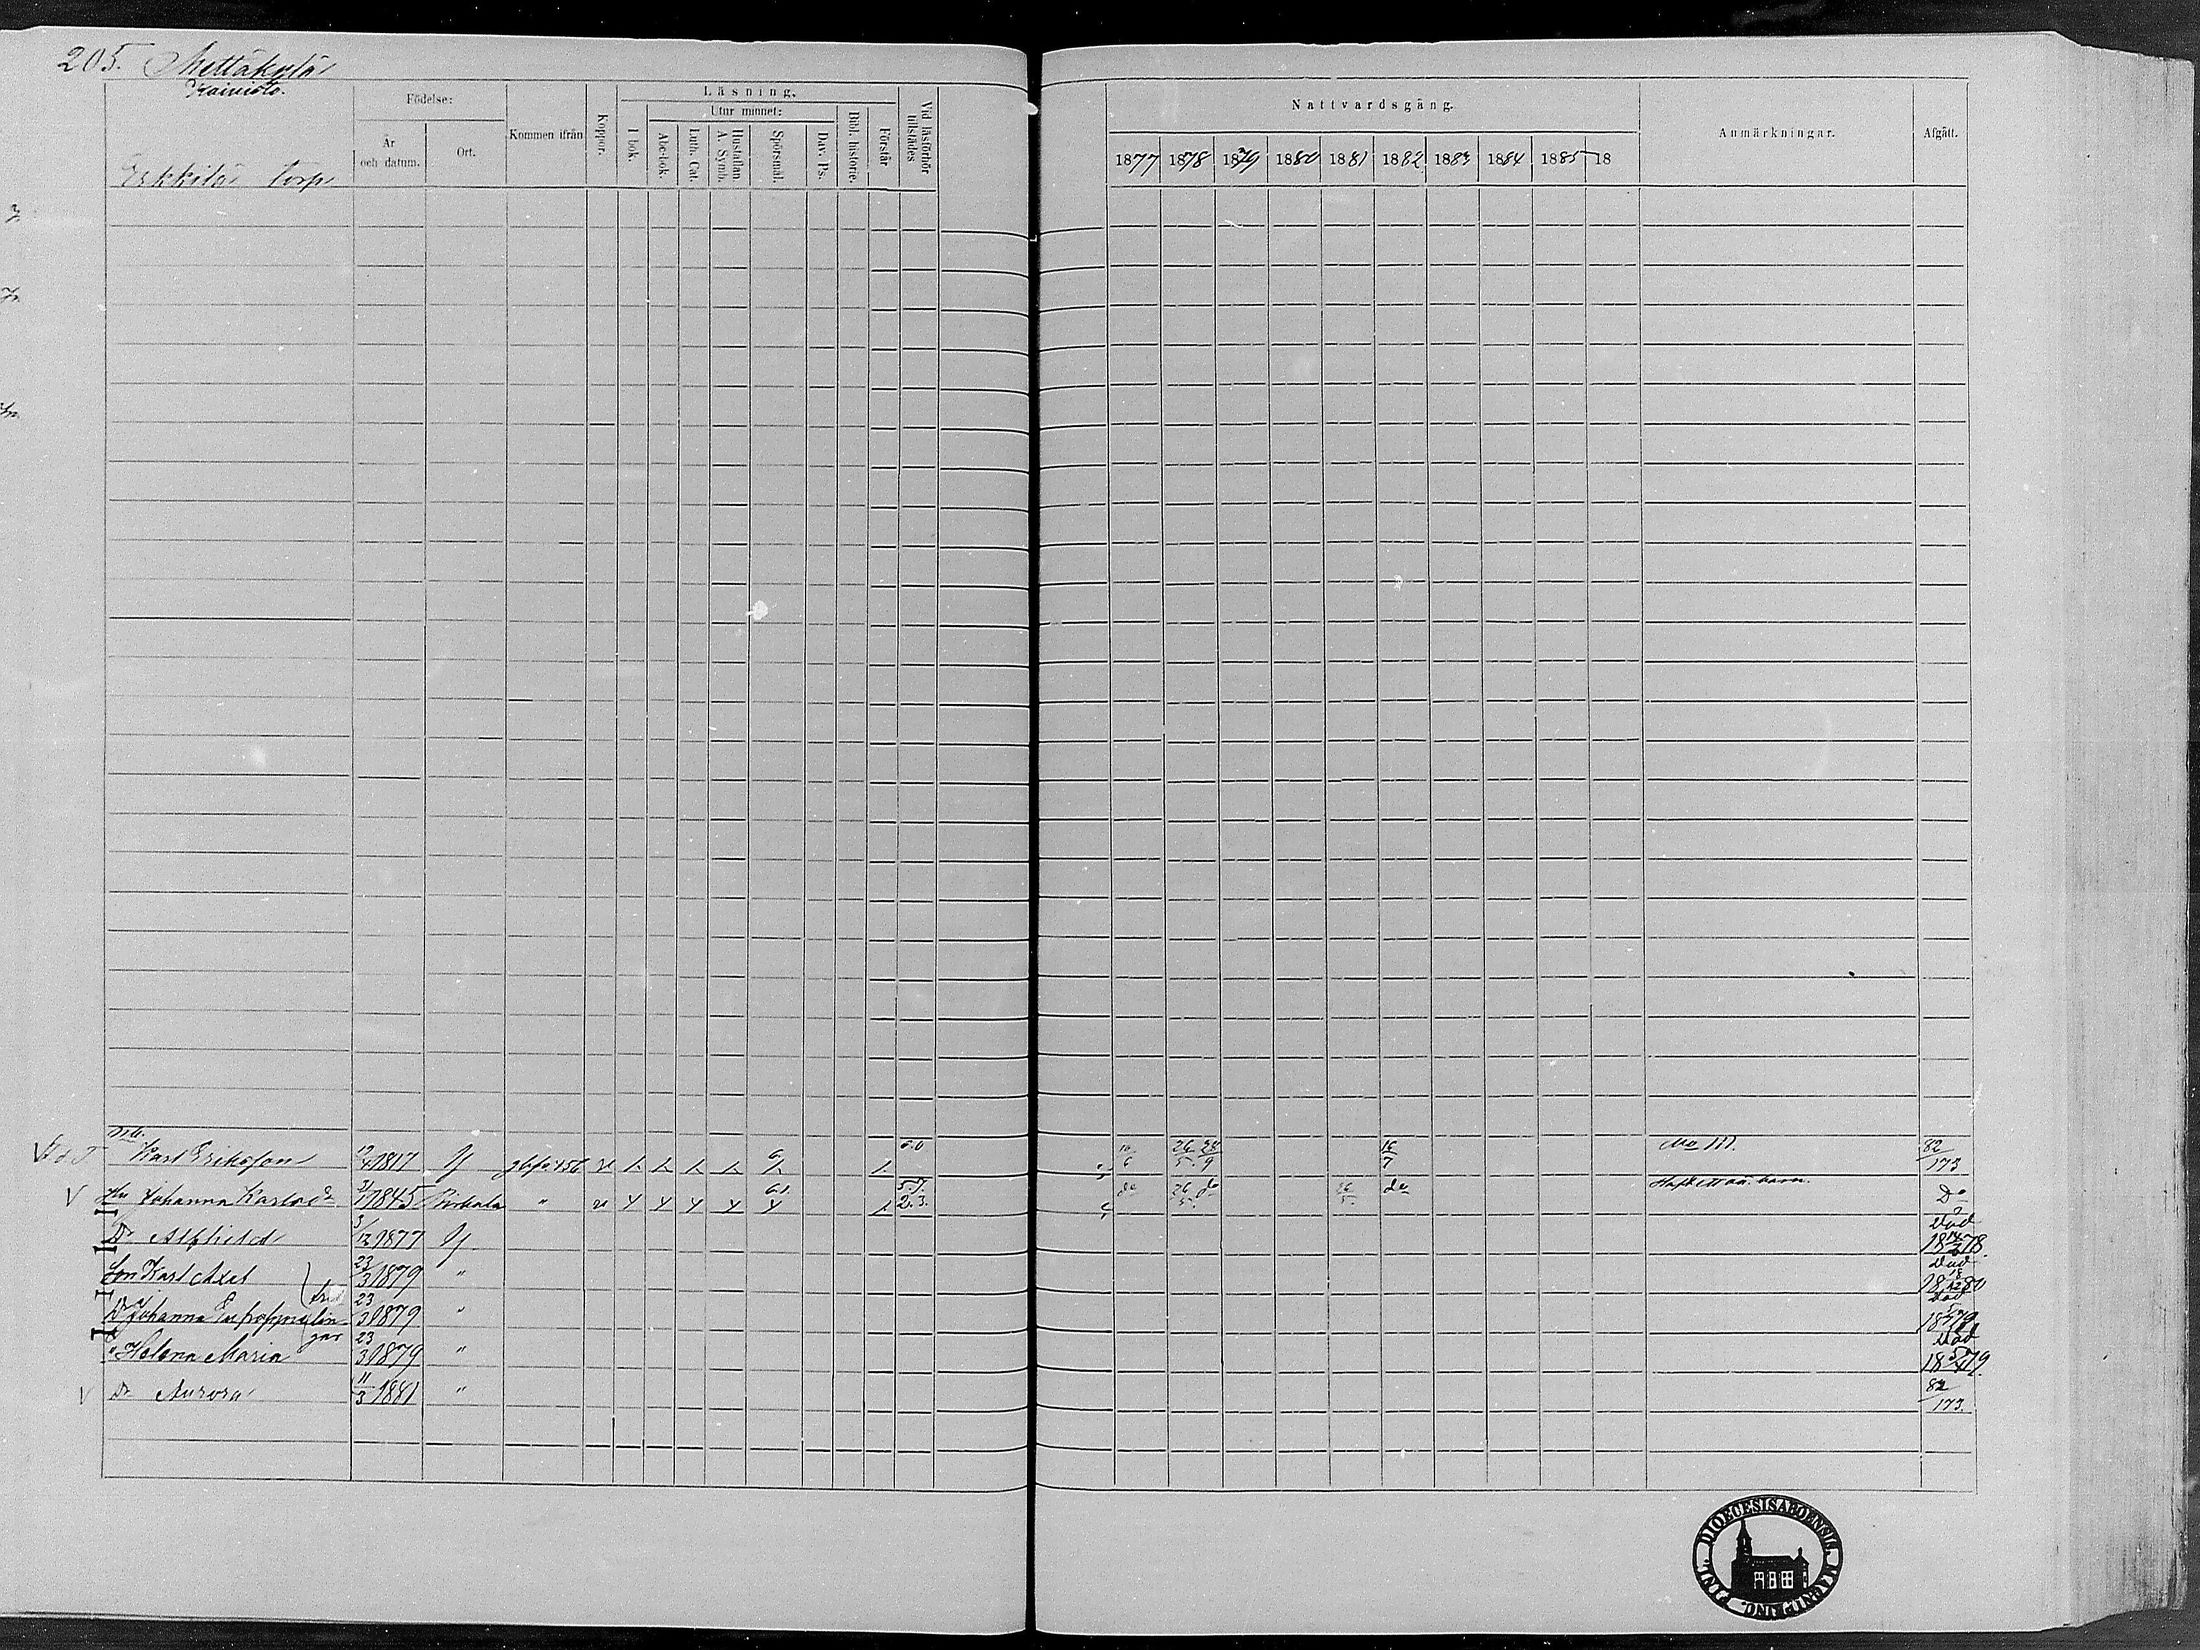 205. Mettäkylä
Kaivisto.
Erkkilä torp
Födelse:
År och datum.
Ort.
Kommen ifrån
Koppor.
Läsning.
I bok.
Utur minnet:
Abc-bok.
Luth. Cat.
Hustaflan A. Symb.
Spörsmål.
Dav. Ps.
Bibl. historie.
Förstår
Vid läsförhör tillstädes
Nattvardsgång.
1877 1878 1879 1880 1881 1882 1883 1884 1885 18
Anmärkningar.
Afgått.
Karl Eriksson 12/4 1817 gbfo 456 6.0 10/6 26/5 28/9 16/7 82/173
V Johanna Karlsdr 3/1 1845 Birkala " 5.7. 2.3. do 26/5 do 26/5 do Do
Dr Alfhild 3/12 1877 död 1878
Son Karl Axel 23/3 1879 " död 1880
Dr Johanna 23/3 1879 " död 1879
" Helena Maria 23/3 1879 " död 1879
V Dr Aurora 11/3 1881 " 82/173.
DIOECESIS ABOENSIS. MAGNI PRINC. FINL.